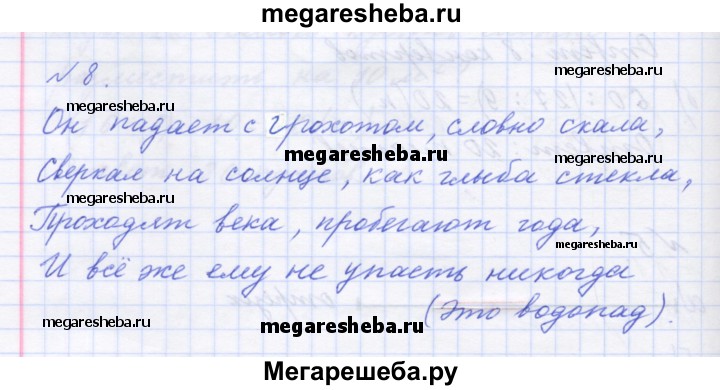 megaresheba.ru
№ 8.
megaresheba.ru megaresheba.ru
Он падает с грохотом, словно скала,
megaresheba.ru
Сверкая на солнце, как глыба стекла,
Проходят века, пробегают года,
megaresheba.ru
И всё же ему не упасть никогда
megaresheba.ru megaresheba.ru
(Это водопад).
Мегарешеба.ру